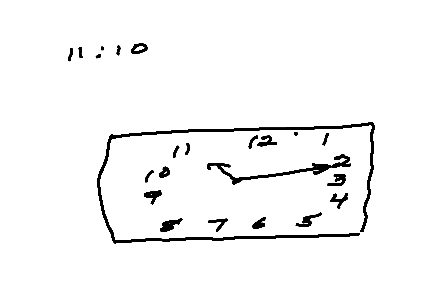 11:10
11 12 1
10 2
9 3
4
8 7 6 5